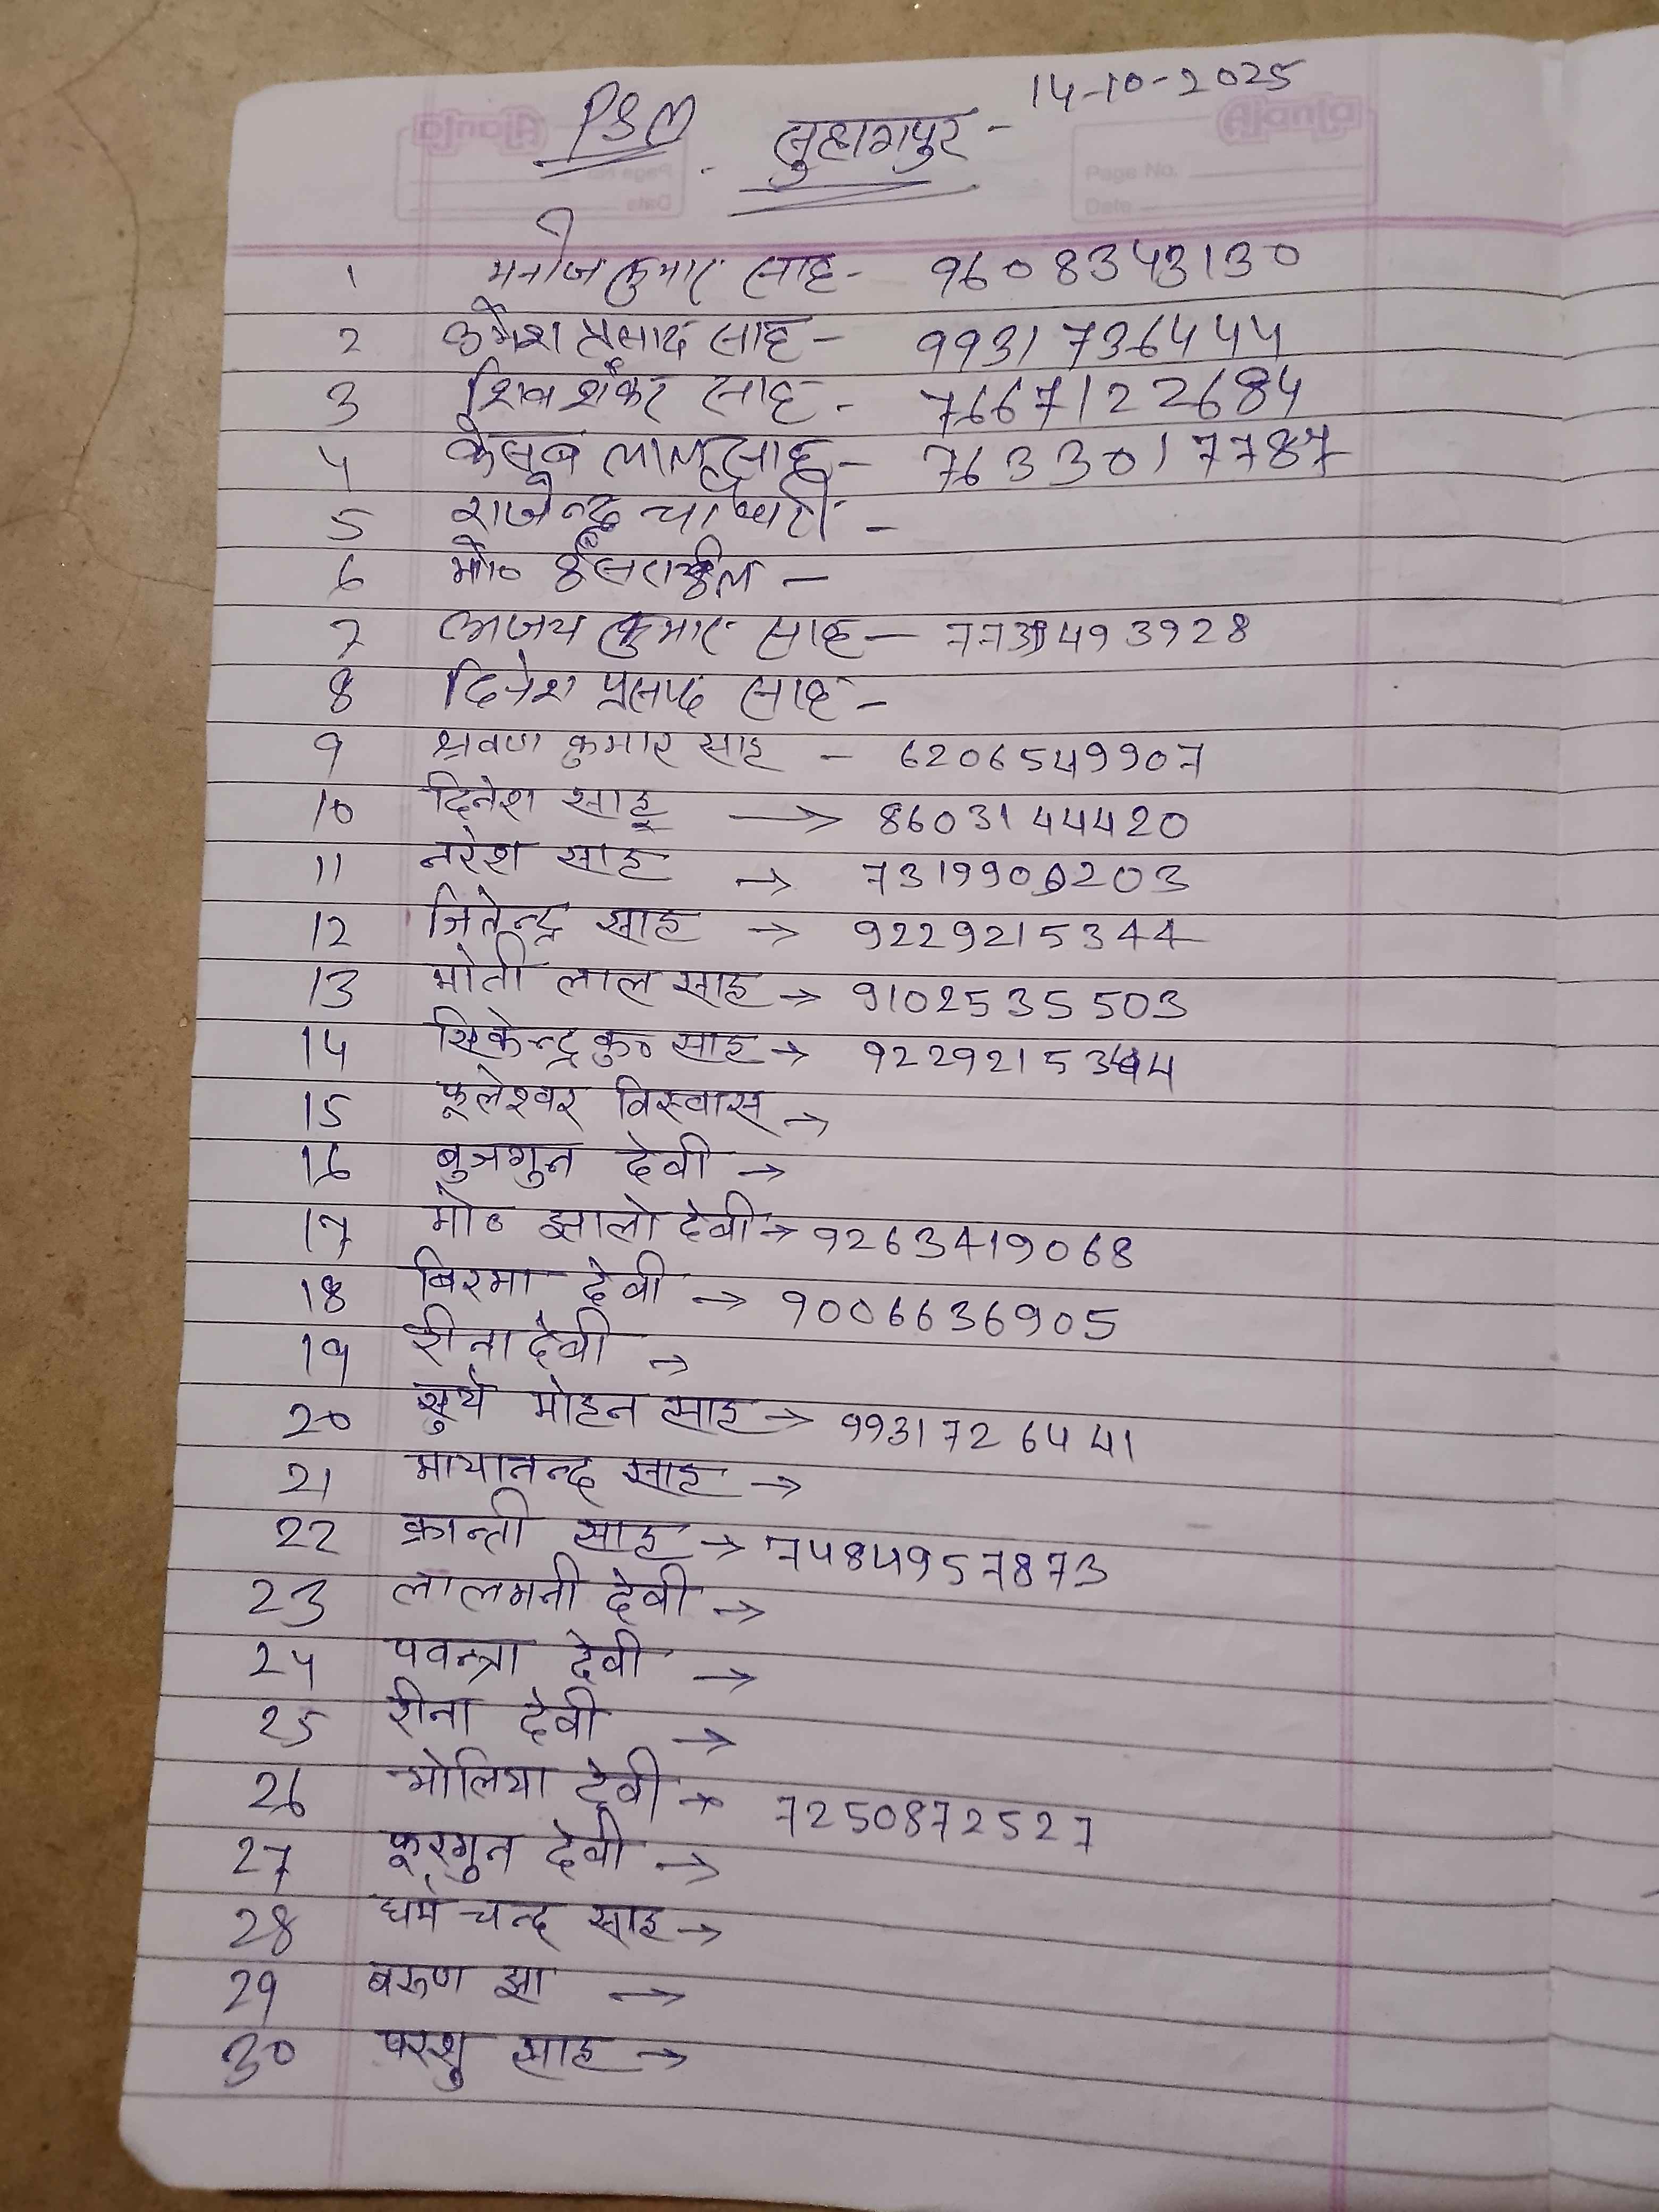 PSM. सुहागपुर - 14-10-2025
1 मनोज कुमार साह - 9608343130
2 उमेश प्रसाद साह - 9931736444
3 शिव शंकर साह - 7667122684
4 केसुब लाल साह - 7633017787
5 राजेन्द्र चौधरी -
6 मो० ईसराईल -
7 अजय कुमार साह - 7739493928
8 दिनेश प्रसाद साह -
9 श्रवण कुमार साह - 6206549907
10 दिनेश साहू → 8603144420
11 नरेश साह → 7319900203
12 जितेन्द्र साह → 9229215344
13 मोती लाल साह → 9102535503
14 सिकेन्द्र कु० साह → 9229215344
15 फूलेश्वर विस्वास →
16 बुजगुन देवी →
17 मो० झालो देवी → 9263419068
18 बिरमा देवी → 9006636905
19 रीना देवी →
20 सुर्य मोहन साह → 9931726441
21 मायानन्द साह →
22 क्रान्ती साह → 7484957873
23 लालमनी देवी →
24 पवन्त्रा देवी →
25 रीना देवी →
26 मोलिया देवी → 7250872527
27 फूरगुन देवी →
28 धर्म चन्द साह →
29 बरुण झा →
30 परशु साह →